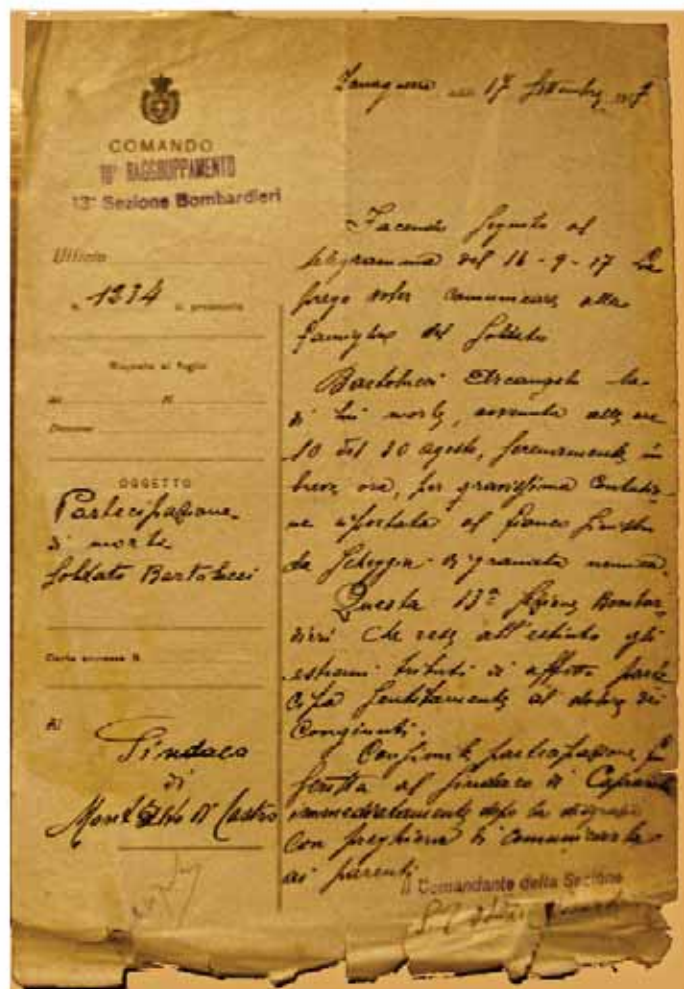 COMANDO
10° RAGGRUPPAMENTO
13ª Sezione Bombardieri
Ufficio
N. 1234 di protocollo
Risposta al foglio
del N.
Divisione
OGGETTO
Partecipazione
di morte
Soldato Bartolucci
Carte annesse N.
Al
Sindaco
di
Montalto di Castro
17 Settembre 1917
Facendo seguito al
telegramma del 16-9-17 La
prego voler comunicare alla
famiglia del Soldato
Bartolucci Arcangelo la
di lui morte, avvenuta alle ore
10 del 30 agosto, serenamente, in
breve ora, per gravissima contusio-
ne riportata al fianco sinistro
da scheggia di granata nemica.
Questa 13ª Sezione Bombar-
dieri che rese all'estinto gli
estremi tributi di affetto parte
cipa sentitamente al dolore dei
Congiunti.
Consimile partecipazione fu
fatta al Sindaco di
immediatamente dopo la disgrazia
con preghiera di comunicarla
ai parenti.
Il Comandante della Sezione